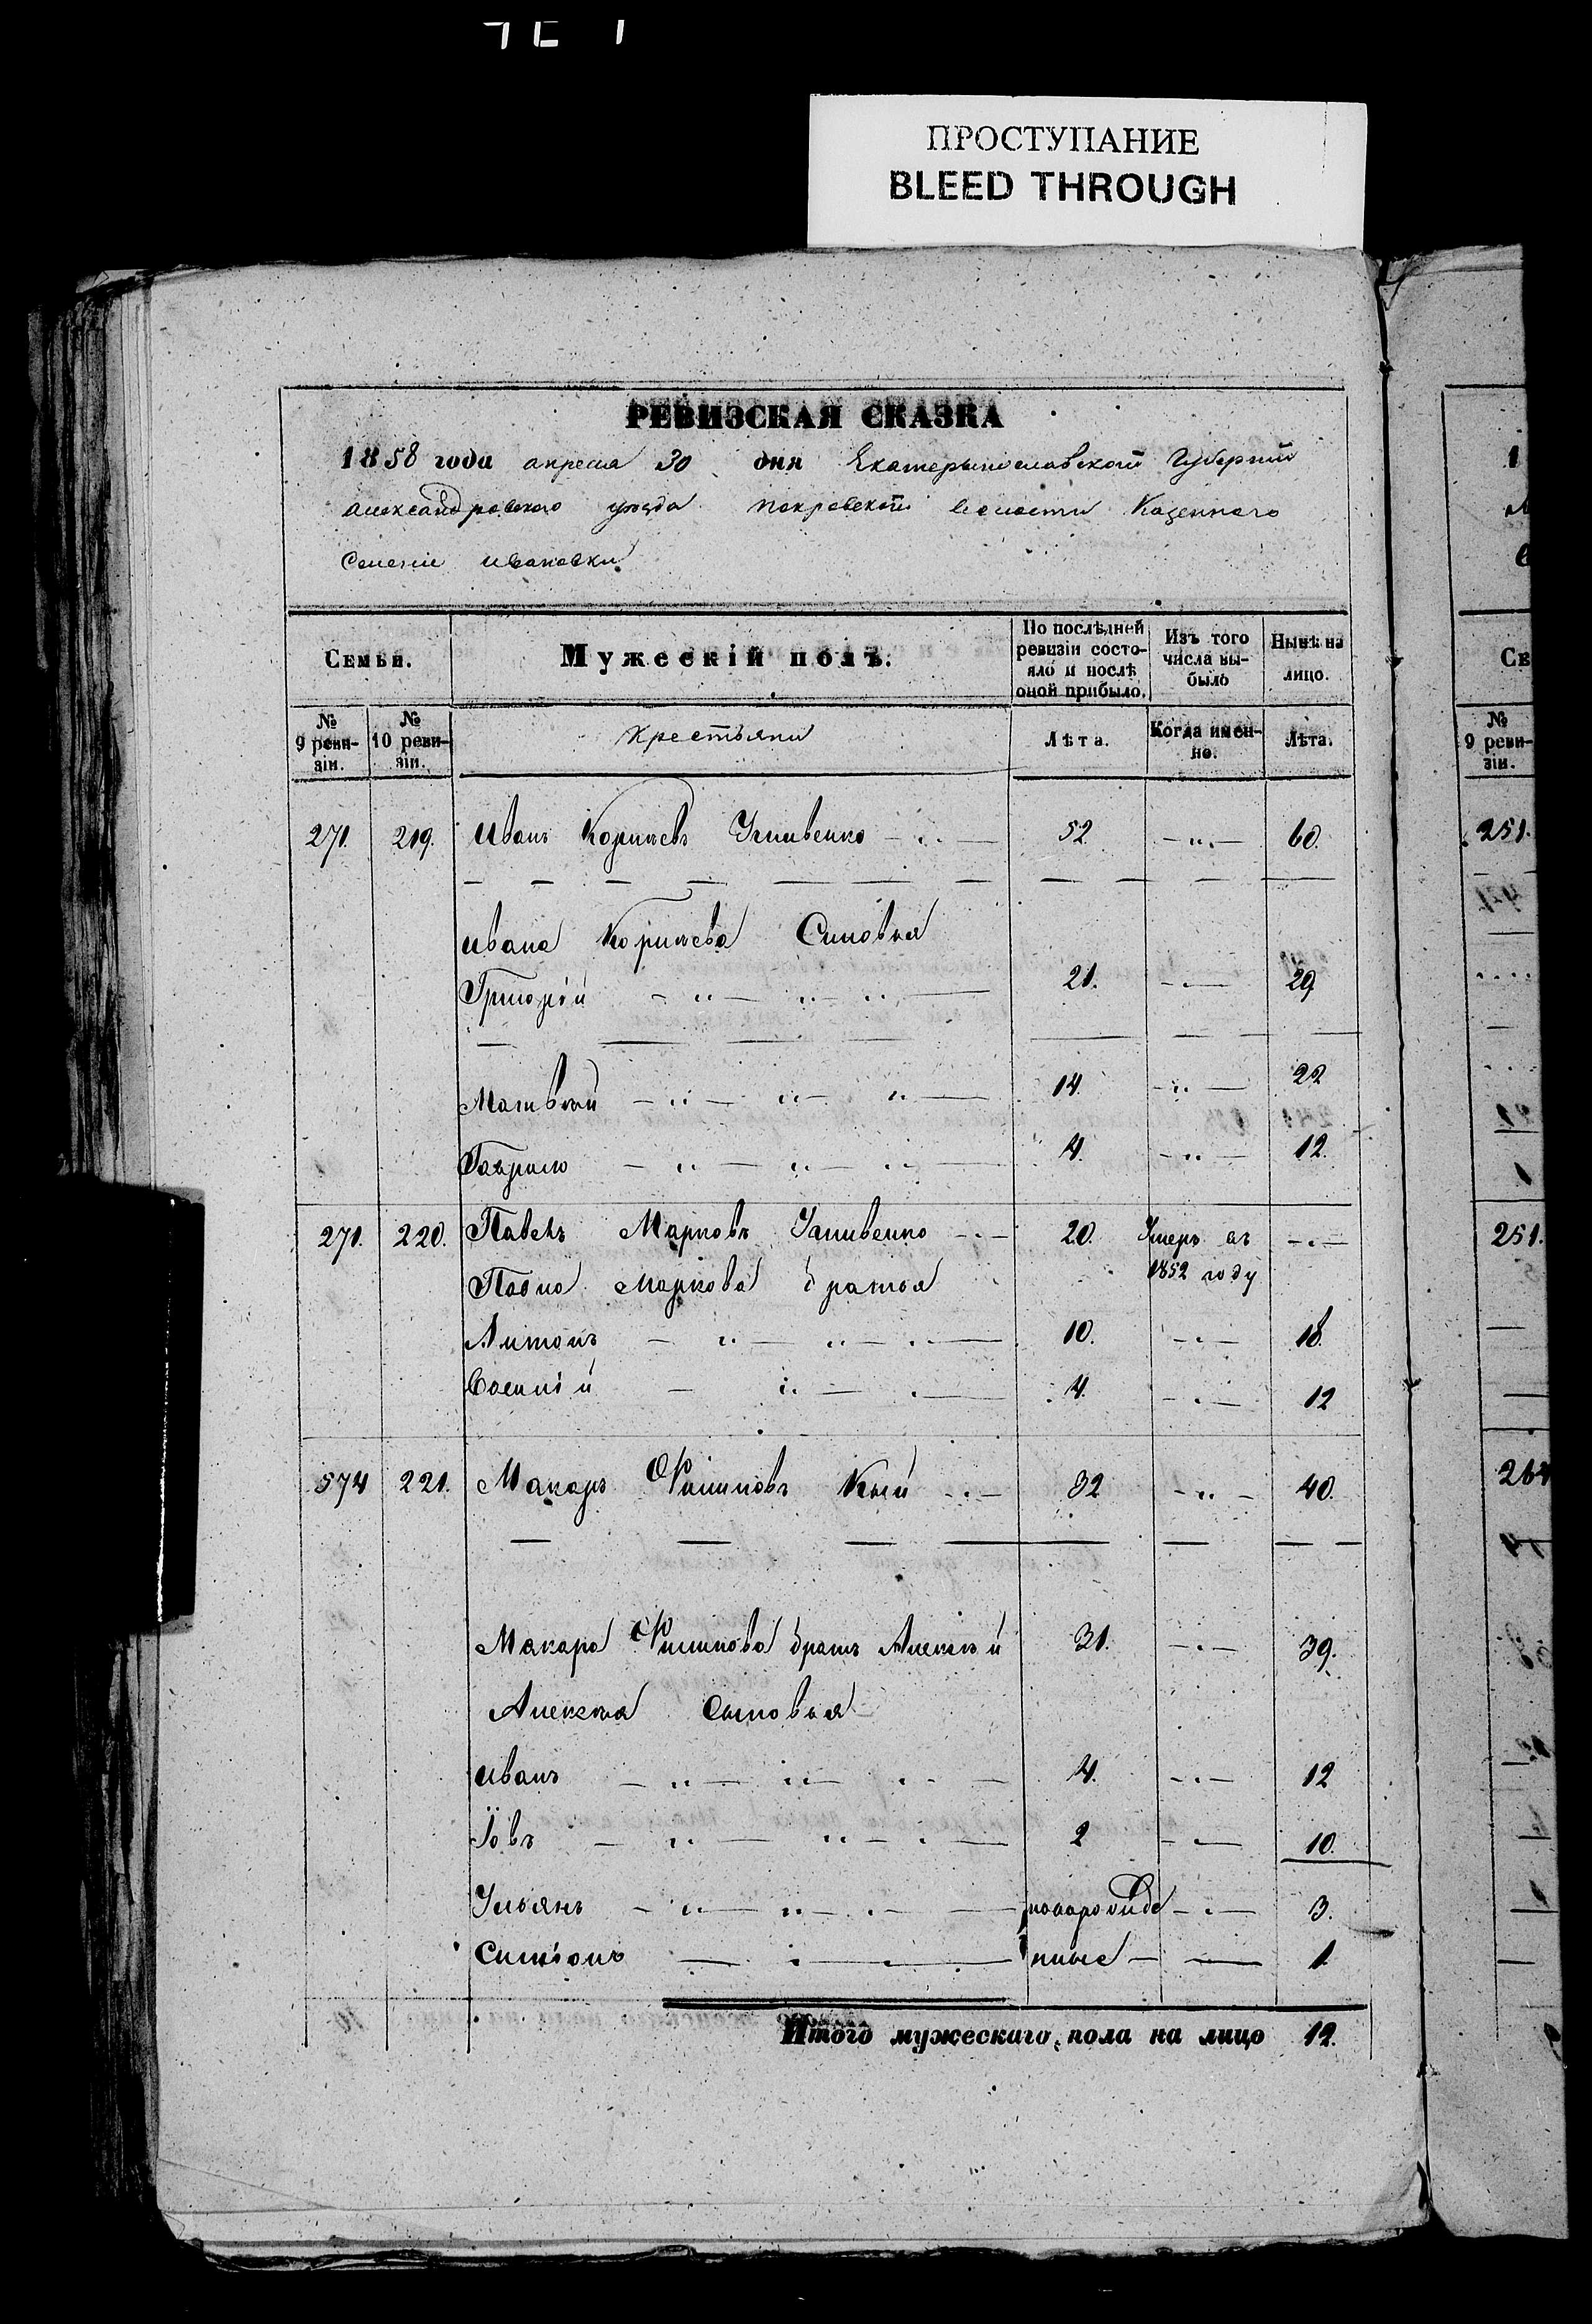 ПРОСТУПАНИЕ
BLEED THROUGH
РЕВИЗСКАЯ СКАЗКА
1858 года апреля 30 дня Екатеринославской Губернии
александровского уезда покровской волости Казенного
Селенія ивановки
Семьи.
Мужескій полъ.
По послѣдней ревизіи состояло и послѣ оной прибыло.
Изъ того числа выбыло
Нынѣ на лицо.
№ 9 ревизіи.
№ 10 ревизіи.
Крестьяни
Лѣта.
Когда именно.
Лѣта.
271. 219. иванъ Корнѣевъ 52 60.
ивана Корнѣева Синовья
Григорій 21. 29
Матвѣй 14. 22
Гаврило 4. 12.
271. 220. Павелъ Марковъ 20. Умеръ въ
Павла Маркова братья 1852 году
Антонъ 10. 18.
Василій 4. 12
574 221. Макаръ Филиповъ Кий 32 40.
Макара Филипова братъ Алексѣй 31. 39.
Алексѣя сыновья
иванъ 4. 12
Іовъ 2 10.
Ульянъ новорожде 3.
Симіонъ нные 1
Итого мужескаго пола на лицо 12.
1
Св
№ 9 ревизіи.
251.
251.
264